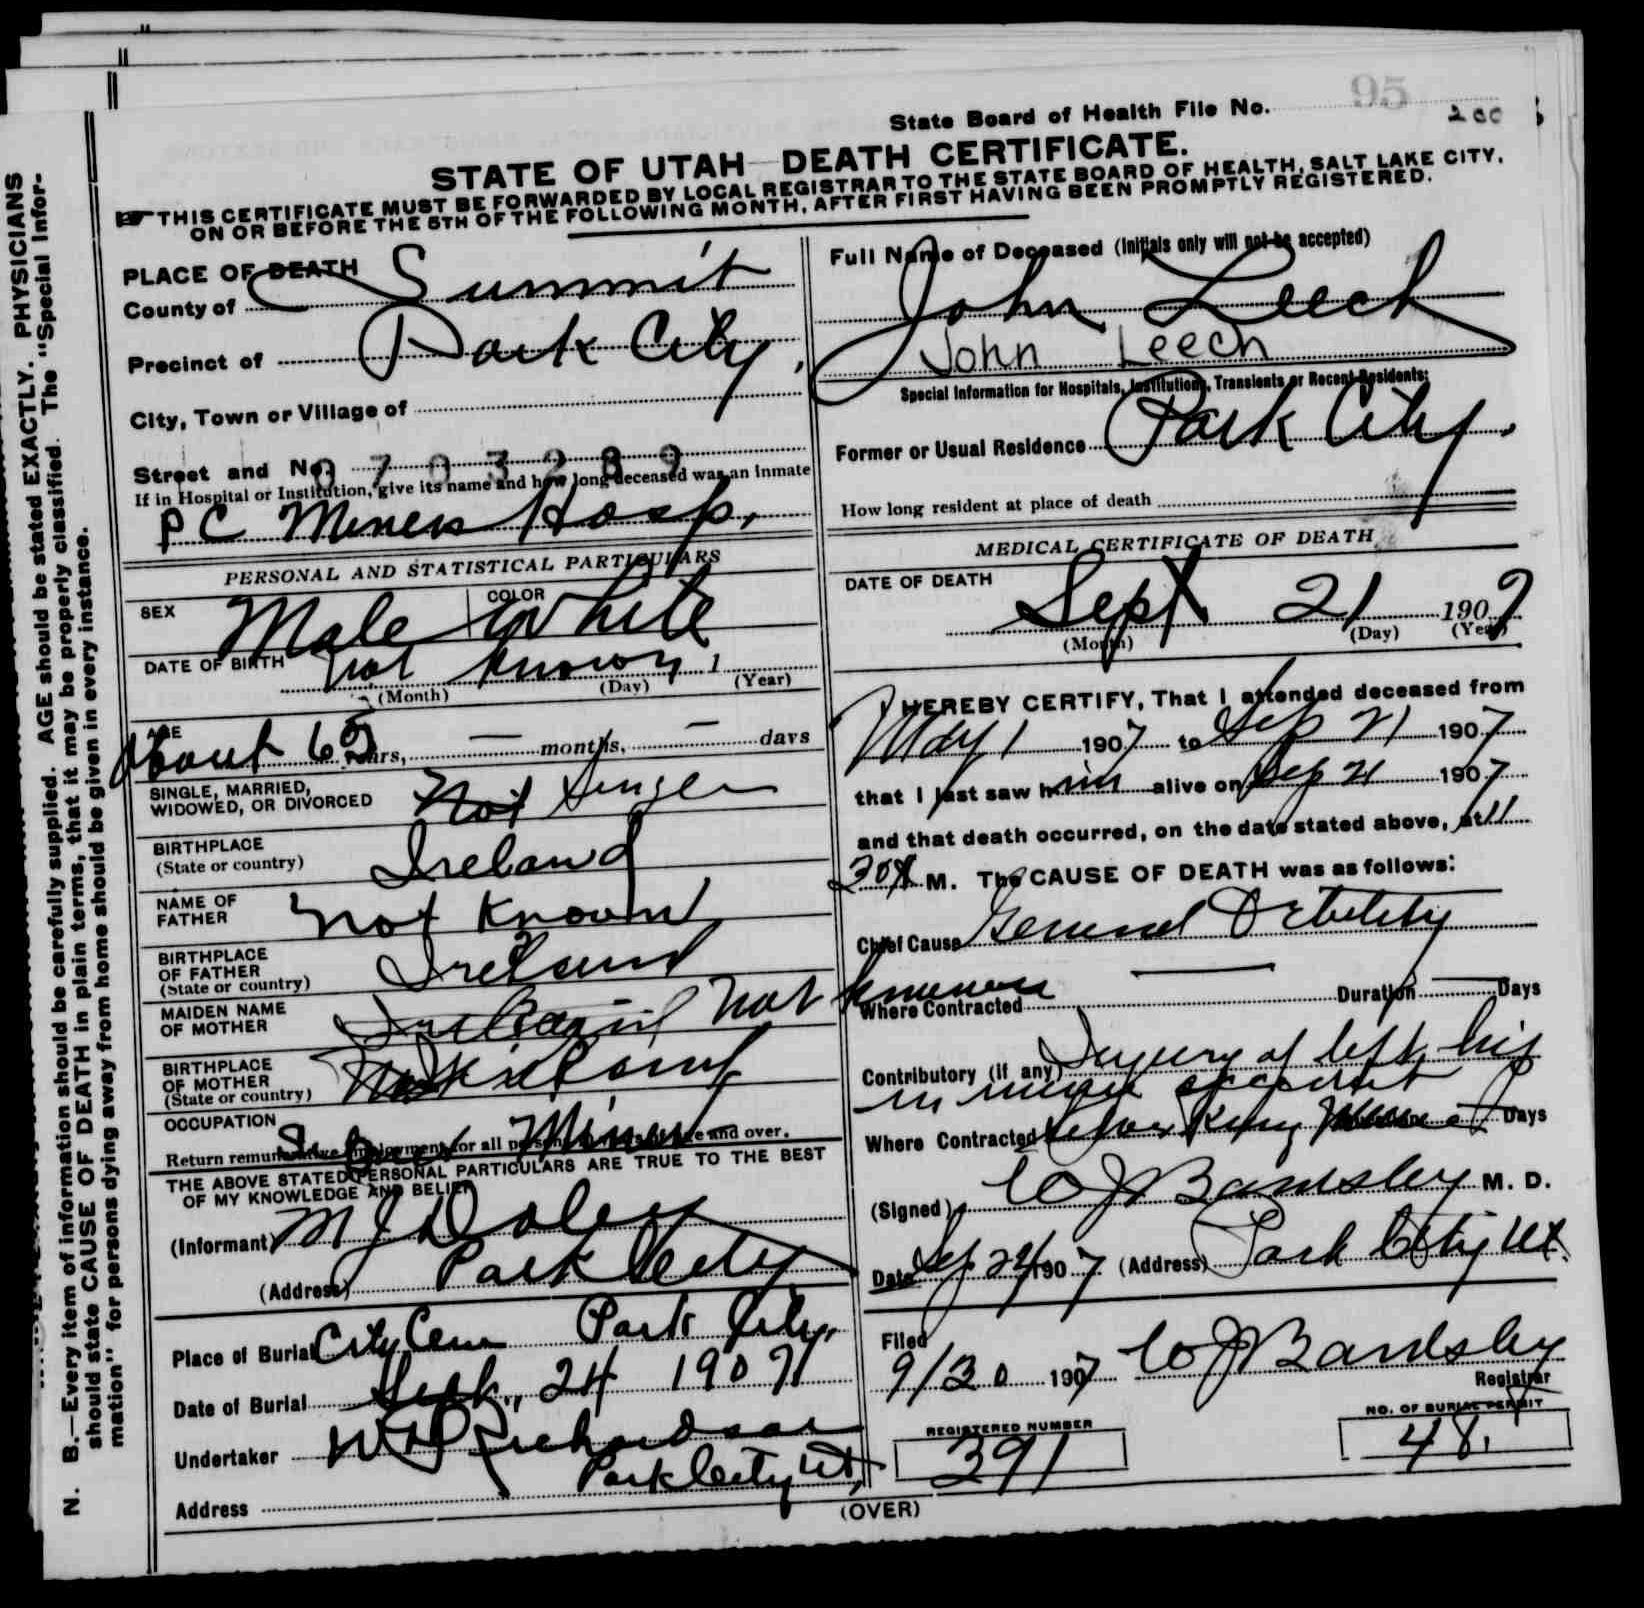 95
State Board of Health File No. 200
STATE OF UTAH—DEATH CERTIFICATE.
THIS CERTIFICATE MUST BE FORWARDED BY LOCAL REGISTRAR TO THE STATE BOARD OF HEALTH, SALT LAKE CITY,
ON OR BEFORE THE 5TH OF THE FOLLOWING MONTH, AFTER FIRST HAVING BEEN PROMPTLY REGISTERED.
PLACE OF DEATH
County of Summit
Precinct of Park City,
City, Town or Village of
Street and No. 0703289
If in Hospital or Institution, give its name and how long deceased was an inmate
P C Miners Hosp.
PERSONAL AND STATISTICAL PARTICULARS
SEX Male COLOR White
DATE OF BIRTH not known 1
(Month) (Day) (Year)
AGE
About 65 years, — months, — days
SINGLE, MARRIED,
WIDOWED, OR DIVORCED Not Single
BIRTHPLACE
(State or country) Ireland
NAME OF
FATHER not known
BIRTHPLACE
OF FATHER
(State or country) Ireland
MAIDEN NAME
OF MOTHER Not known
BIRTHPLACE
OF MOTHER
(State or country)
OCCUPATION Miner
Return remunerative employment for all persons and over.
THE ABOVE STATED PERSONAL PARTICULARS ARE TRUE TO THE BEST
OF MY KNOWLEDGE AND BELIEF
(Informant) M J Daley
(Address) Park City
Place of Burial City Cem Park City,
Date of Burial Sept., 24 1907
Undertaker W H Richardson
Park City Ut,
Address
Full Name of Deceased (Initials only will not be accepted)
John Leech
John Leech
Special Information for Hospitals, Institutions, Transients or Recent Residents:
Former or Usual Residence Park City.
How long resident at place of death
MEDICAL CERTIFICATE OF DEATH
DATE OF DEATH
Sept 21 1907
(Month) (Day) (Year)
I HEREBY CERTIFY, That I attended deceased from
May 1 1907 to Sep 21 1907
that I last saw him alive on Sep 21 1907
and that death occurred, on the date stated above, at 11
30 M. The CAUSE OF DEATH was as follows:
Chief Cause General Debility
Where Contracted Duration Days
Contributory (if any) Injury of left hip
in mine accident
Where Contracted Silver King Mine Days
(Signed) W J Bardsley M. D.
Date Sep 24 1907 (Address) Park City Ut.
Filed
9/30 1907 W J Bardsley
Registrar
REGISTERED NUMBER
391
NO. OF BURIAL PERMIT
48.
(OVER)
N. B.—Every item of information should be carefully supplied. AGE should be stated EXACTLY. PHYSICIANS
should state CAUSE OF DEATH in plain terms, that it may be properly classified. The "Special Infor-
mation" for persons dying away from home should be given in every instance.